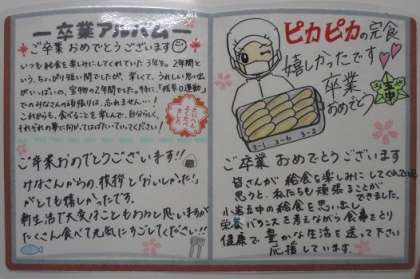 ー卒業アルバムー
ご卒業おめでとうございます
いつも給食を楽しみにしてくれていた3年生。2年間と
いう、ちょっぴり短い間でしたが、楽しくて、うれしい思い出が
いっぱいの、宝物の2年間でした。特に「残菜0運動」
でのみなさんの頑張りは、忘れません…!
これからも、食べることを楽しんで、自分らしく、
それぞれの夢に向かってはばたいていってください!
ご卒業おめでとうございます!!
みなさんからの、挨拶と「おいしかった!」が
とても嬉しかったです。
新生活で大変なこともあると思いますが
たくさん食べて元気にすごしてくださいい!!
ピカピカの完食
嬉しかったです
卒業
おめでとう
3-1 3-6 3-2
ご卒業おめでとうございます
皆さんが給食を楽しみにしてくれていると
思うと、私たちも頑張ることができました。
中の給食を思い出し
栄養バランスを考えながら食事をとり
健康で豊かな生活を送って下さい
応援しています。